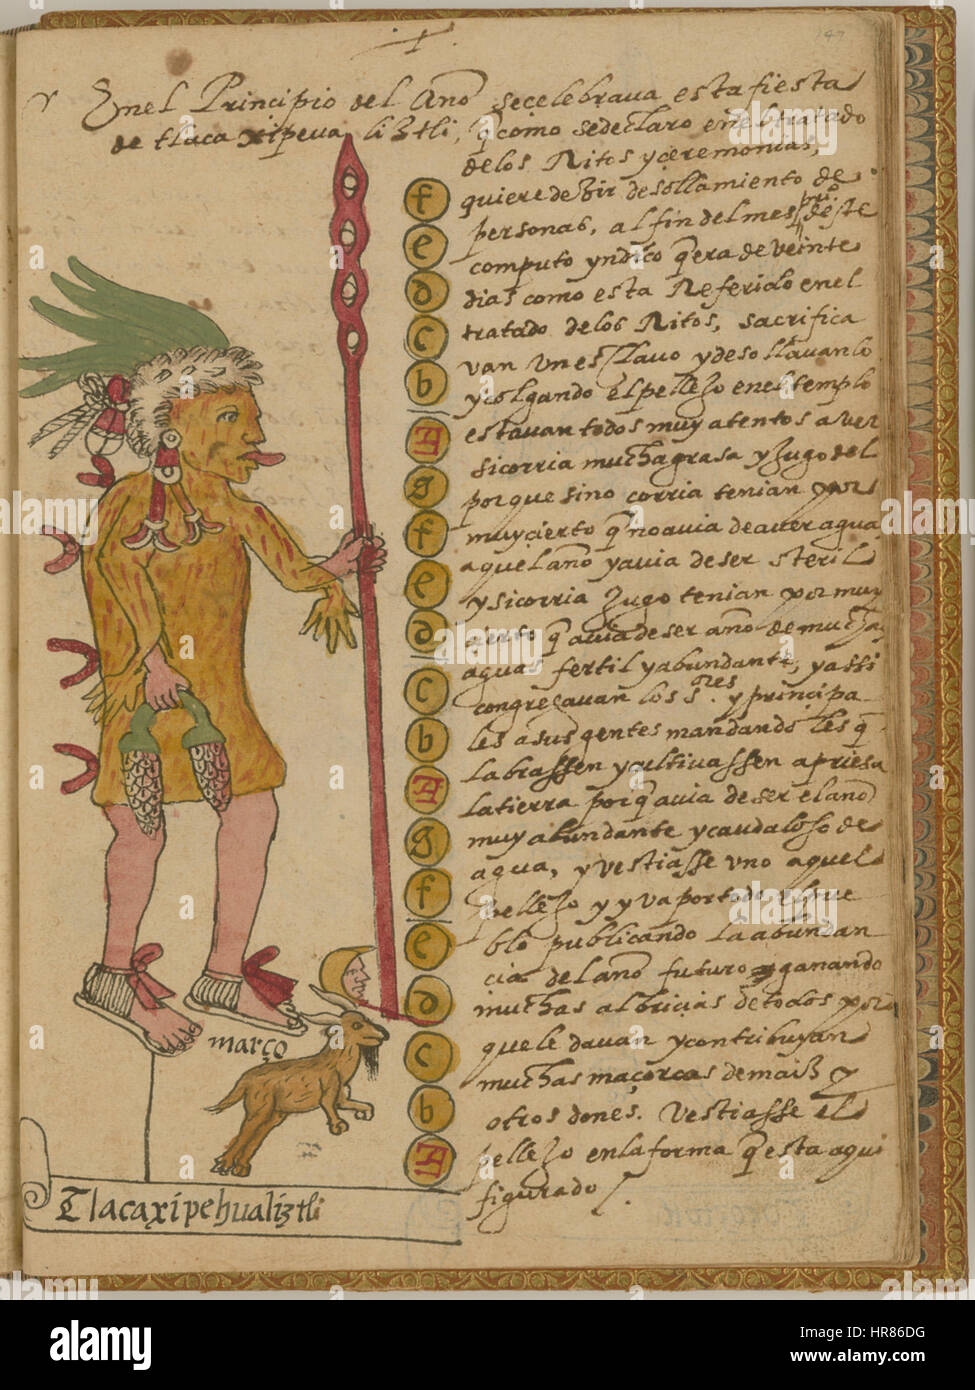 147
En el Principio del Año secelebrava esta fiesta
de tlaca xipeua liztli, q̄ como sedeclaro enel tratado
delos Ritos yceremonias,
quiere dezir desollamiento de
personas, al fin del mes prio deste
computo yndico q̄ era de veinte
dias como esta Referido enel
tratado delos Ritos, sacrifica
van un esclavo ydesollavanlo
ycolgando el pellejo enel templo
estavan todos muy atentos a ver
sicorria mucha grasa yjugo del
porque sino corria tenian por
muycierto q̄ no avia deaver agua
aquel año yavia de ser steril
ysicorria jugo tenian por muy
cierto q̄ avia deser año de mucha
aguas fertil yabundante, yassi
congregavan los s.res y principa
les asus gentes mandando les q̄
labrassen ycultivassen apriesa
latierra porq̄ avia deser elaño
muy abundante ycaudaloso de
agua, yvestiasse uno aquel
pellejo y yva portodo elpue
blo publicando la abundan
cia del año futuro yganando
muchas albricias detodos por
quele davan ycontribuyan
muchas maçorcas demaiz y
otros dones. Vestiasse el
pellejo enlaforma q̄ esta aqui
figurado
f
e
d
c
b
A
g
f
e
d
c
b
A
g
f
e
d
c
b
A
março
Tlacaxipehualiztli
alamy
alamy stock photo
HR86DG
www.alamy.com